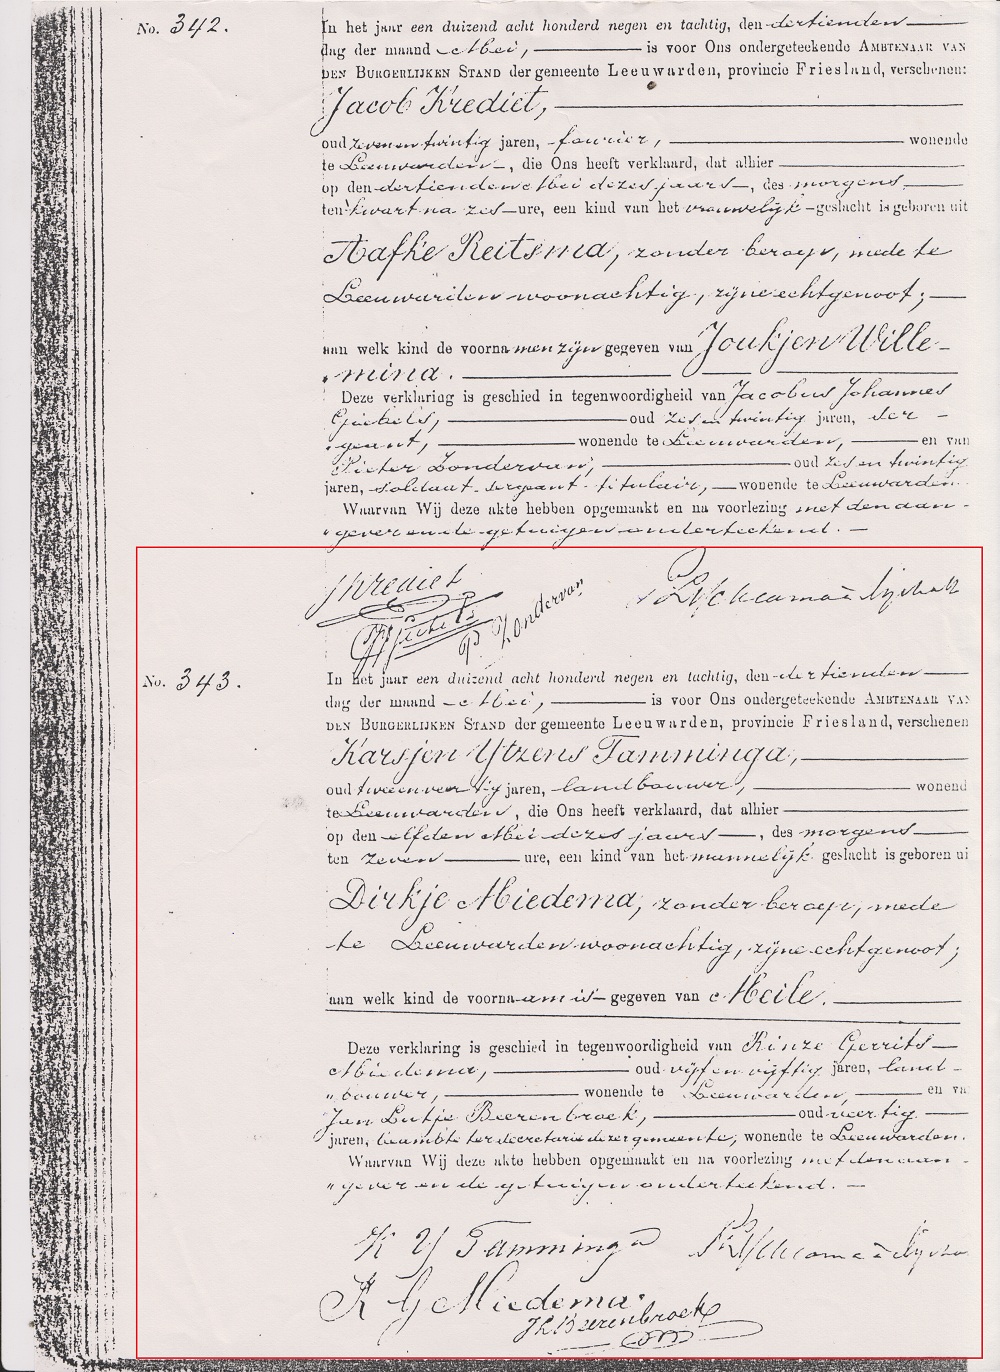 No. 342.
In het jaar een duizend acht honderd negen en tachtig, den dertienden
dag der maand Mei, is voor Ons ondergeteekende AMBTENAAR VAN
DEN BURGERLIJKEN STAND der gemeente Leeuwarden, provincie Friesland, verschenen:
Jacob Krediet,
oud zeven en twintig jaren, fourier, wonende
te Leeuwarden, die Ons heeft verklaard, dat alhier
op den dertienden Mei dezes jaars, des morgens
ten kwart na zes ure, een kind van het vrouwelijk geslacht is geboren uit
Aafke Reitsma, zonder beroep, mede te
Leeuwarden woonachtig, zijne echtgenoot;
aan welk kind de voornamen zijn gegeven van Joukjen Wille-
mina.
Deze verklaring is geschied in tegenwoordigheid van Jacobus Johannes
Giebels, oud zes en twintig jaren, ser-
geant, wonende te Leeuwarden, en van
Pieter Zondervan, oud zes en twintig
jaren, soldaat sergeant titulair, wonende te Leeuwarden.
Waarvan Wij deze akte hebben opgemaakt en na voorlezing met den aan-
gever en de getuigen onderteekend.
JKrediet
Giebels
P. Zondervan
No. 343.
In het jaar een duizend acht honderd negen en tachtig, den dertienden
dag der maand Mei, is voor Ons ondergeteekende AMBTENAAR VAN
DEN BURGERLIJKEN STAND der gemeente Leeuwarden, provincie Friesland, verschenen
Karsjen Ytzens Tamminga,
oud twee en veertig jaren, landbouwer, wonend
te Leeuwarden, die Ons heeft verklaard, dat alhier
op den elfden Mei dezes jaars, des morgens
ten zeven ure, een kind van het mannelijk geslacht is geboren ui
Dirkje Miedema, zonder beroep, mede
te Leeuwarden woonachtig, zijne echtgenoot;
aan welk kind de voornaam is gegeven van Meile.
Deze verklaring is geschied in tegenwoordigheid van Rinze Gerrits
Miedema, oud vijf en vijftig jaren, land-
bouwer, wonende te Leeuwarden, en va
Jan Lutje Beerenbroek, oud veertig
jaren, beambte ter secretarie dezer gemeente, wonende te Leeuwarden.
Waarvan Wij deze akte hebben opgemaakt en na voorlezing met den aan-
gever en de getuigen onderteekend.
K Y Tamminga
R G Miedema
JLBeerenbroek